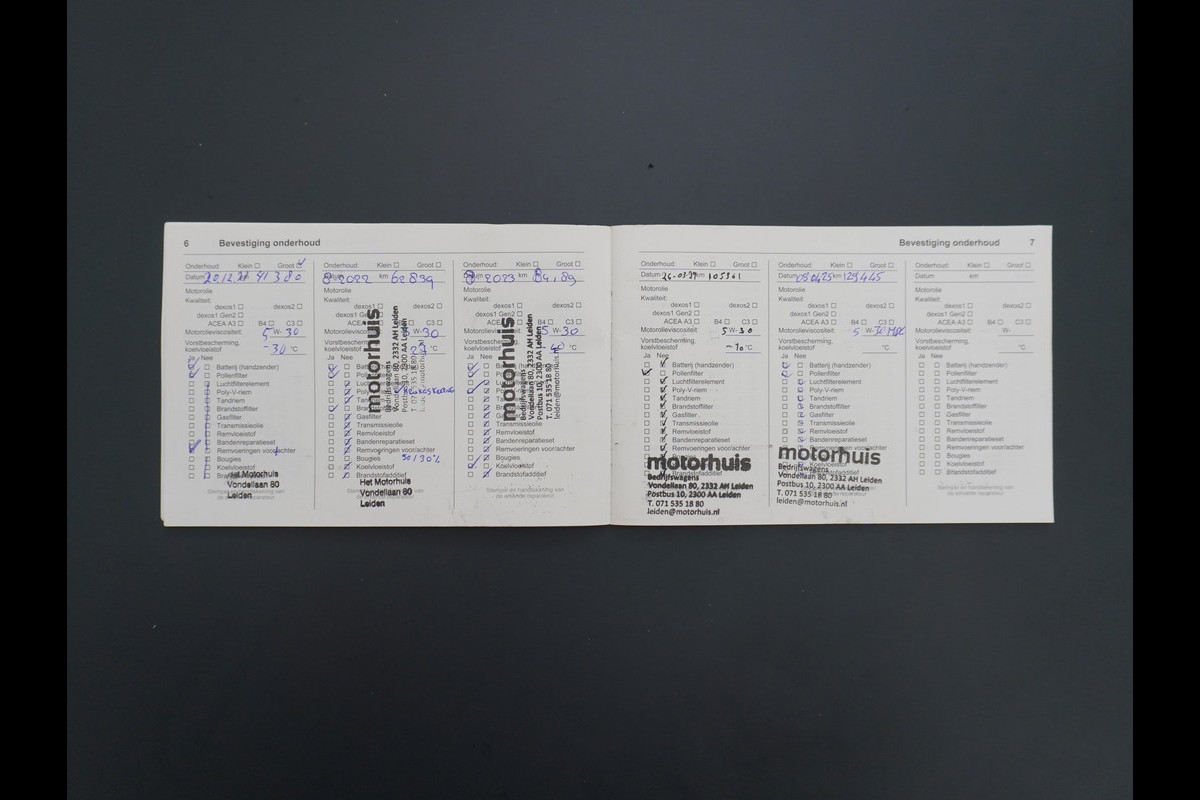 6 Bevestiging onderhoud
Onderhoud: Klein ☐ Groot ☐
Datum 20.12.21 41380
Motorolie
Kwaliteit:
dexos1 ☐ dexos2 ☐
dexos1 Gen2 ☐
ACEA A3 ☐ B4 ☐ C3 ☐
Motorolieviscositeit: 5 W- 30
Vorstbescherming,
koelvloeistof -30 °C
Ja Nee
Batterij (handzender)
Pollenfilter
Luchtfilterelement
Poly-V-riem
Tandriem
Brandstoffilter
Gasfilter
Transmissieolie
Remvloeistof
Bandenreparatieset
Remvoeringen voor/achter
Bougies
Koelvloeistof
Het Motorhuis
Vondellaan 80
Leiden
Onderhoud: Klein ☐ Groot ☐
8-2022 km 62839
Motorolie
Kwaliteit:
dexos1 ☐ dexos2 ☐
dexos1 Gen2 ☐
B4 ☐ C3 ☐
Motorolieviscositeit: 5 W- 30
Vorstbescherming,
koelvloeistof °C
Ja Nee
Gasfilter
Transmissieolie
Remvloeistof
Bandenreparatieset
Remvoeringen voor/achter
Bougies 50/30%
Koelvloeistof
motorhuis
Bedrijfswagens
Vondellaan 80, 2332 AH Leiden
Postbus 10, 2300 AA Leiden
T. 071 535 18 80
Het Motorhuis
Vondellaan 80
Leiden
Onderhoud: Klein ☐ Groot ☐
2023 km
Motorolie
Kwaliteit:
dexos1 ☐ dexos2 ☐
dexos1 Gen2 ☐
ACEA B4 ☐ C3 ☐
Motorolieviscositeit: 5 W-30
Vorstbescherming,
koelvloeistof 40 °C
Ja Nee
Gasfilter
Transmissieolie
Remvloeistof
Bandenreparatieset
Remvoeringen voor/achter
Bougies
Koelvloeistof
Brandstofadditief
motorhuis
Bedrijfswagens
Vondellaan 80, 2332 AH Leiden
Postbus 10, 2300 AA Leiden
T. 071 535 18 80
leiden@motorhuis.nl
Bevestiging onderhoud 7
Onderhoud: Klein ☐ Groot ☐
Datum km 105361
Motorolie
Kwaliteit:
dexos1 ☐ dexos2 ☐
dexos1 Gen2 ☐
ACEA A3 ☐ B4 ☐ C3 ☐
Motorolieviscositeit: 5 W- 30
Vorstbescherming,
koelvloeistof °C
Ja Nee
Batterij (handzender)
Pollenfilter
Luchtfilterelement
Poly-V-riem
Tandriem
Brandstoffilter
Gasfilter
Transmissieolie
Remvloeistof
Bandenreparatieset
Remvoeringen voor/achter
motorhuis
Bedrijfswagens
Vondellaan 80, 2332 AH Leiden
Postbus 10, 2300 AA Leiden
T. 071 535 18 80
leiden@motorhuis.nl
Onderhoud: Klein ☐ Groot ☐
Datum 08-04-25 km 129445
Motorolie
Kwaliteit:
dexos1 ☐ dexos2 ☐
dexos1 Gen2 ☐
ACEA A3 ☐ B4 ☐ C3 ☐
Motorolieviscositeit: 5 W-30
Vorstbescherming,
koelvloeistof °C
Ja Nee
Batterij (handzender)
Pollenfilter
Luchtfilterelement
Poly-V-riem
Tandriem
Brandstoffilter
Gasfilter
Transmissieolie
Remvloeistof
Bandenreparatieset
Remvoeringen voor/achter
motorhuis
Bedrijfswagens
Vondellaan 80, 2332 AH Leiden
Postbus 10, 2300 AA Leiden
T. 071 535 18 80
leiden@motorhuis.nl
Onderhoud: Klein ☐ Groot ☐
Datum km
Motorolie
Kwaliteit:
dexos1 ☐ dexos2 ☐
dexos1 Gen2 ☐
ACEA A3 ☐ B4 ☐ C3 ☐
Motorolieviscositeit: W-
Vorstbescherming,
koelvloeistof °C
Ja Nee
Batterij (handzender)
Pollenfilter
Luchtfilterelement
Poly-V-riem
Tandriem
Brandstoffilter
Gasfilter
Transmissieolie
Remvloeistof
Bandenreparatieset
Remvoeringen voor/achter
Bougies
Koelvloeistof
Brandstofadditief
Stempel en handtekening van
de erkende reparateur